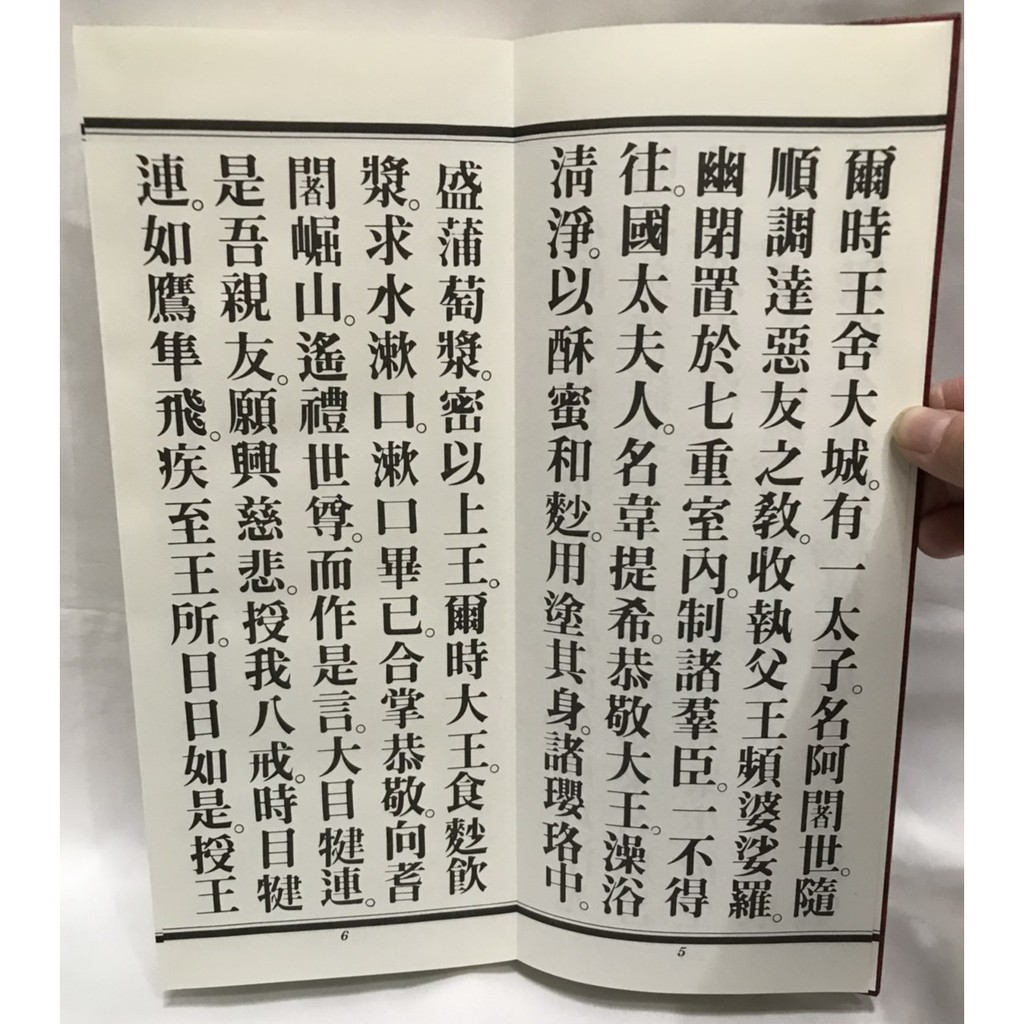 爾時王舍大城。有一太子。名阿闍世。隨
順調達惡友之教。收執父王頻婆娑羅。
幽閉置於七重室內。制諸羣臣。一不得
往。國太夫人。名韋提希。恭敬大王。澡浴
清淨。以酥蜜和麨。用塗其身。諸瓔珞中。
5
盛蒲萄漿。密以上王。爾時大王。食麨飲
漿。求水漱口。漱口畢已。合掌恭敬。向耆
闍崛山。遙禮世尊。而作是言。大目犍連。
是吾親友。願興慈悲。授我八戒。時目犍
連。如鷹隼飛。疾至王所。日日如是。授王
6